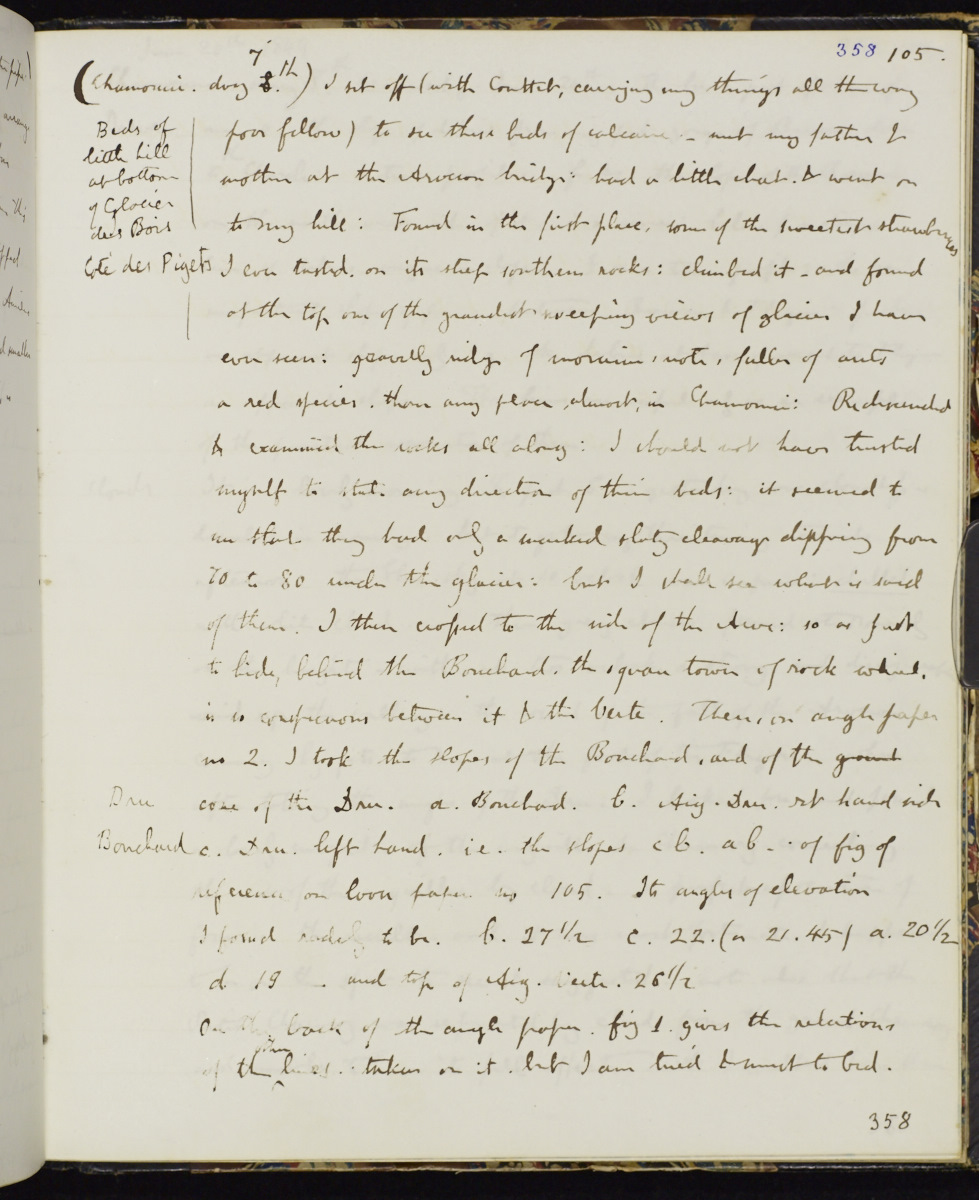 358 105.
(Chamonix. day 7 8.th) I set off (with Couttet, carrying my things all the way
poor fellow) to see these beds of calcaire - met my father &
mother at the Arveron bridge: had a little chat. & went on
to my hill: Found in the first place, some of the sweetest strawberries
I ever tasted. on its steep southern rocks: climbed it - and found
at the top one of the grandest sweeping views of glacier I have
ever seen: gravelly ridge of moraine, note, fuller of ants
a red species. than any place, almost, in Chamonix: Redescended
& examined the rocks all along: I should not have trusted
myself to state any direction of their beds: it seemed to
me that they had only a marked slaty cleavage dipping from
70 to 80 under the glacier: but I shall see what is said
of them. I then crossed to the side of the Arve: so as just
to hide, behind the Bouchard, the square tower of rock which
is so conspicuous between it & the Verte. Then, on angle paper
no 2. I took the slopes of the Bouchard, and of the ground
cone of the Dru. a. Bouchard. b. Aig. Dru. rit hand side
c. Dru. left hand. i.e. the slopes c b. a b - . of fig of
reference on loose paper no 105. Its angles of elevation
I found to be. b. 27 1/2 c. 22. (or 21.45) a. 20 1/2
d 19 . and top of Aig. Verte. 26 1/2
On the back of the angle paper. fig 1. gives the relations
of the lines.. taken on it. but I am tired & must to bed.
Beds of
little hill
at bottom
of Glacier
des Bois
Coté des Pigets
Dru
Bouchard
358